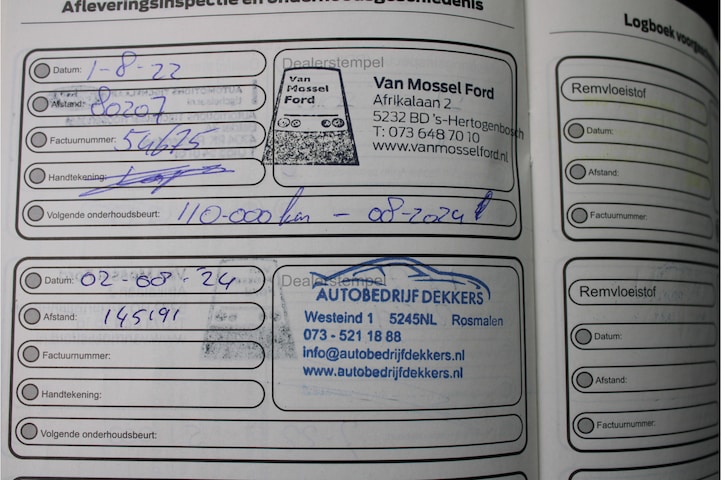 Afleveringsinspectie en onderhoudsgeschiedenis
Datum: 1-8-22
Afstand: 80207
Factuurnummer: 54675
Handtekening:
Dealerstempel
Van Mossel Ford
Van Mossel Ford
Afrikalaan 2
5232 BD 's-Hertogenbosch
T: 073 648 70 10
www.vanmosselford.nl
Volgende onderhoudsbeurt: 110-000 km - 08-2024
Datum: 02-08-24
Afstand: 145191
Factuurnummer:
Handtekening:
Dealerstempel
AUTOBEDRIJF DEKKERS
Westeind 1 5245NL Rosmalen
073 - 521 18 88
info@autobedrijfdekkers.nl
www.autobedrijfdekkers.nl
Volgende onderhoudsbeurt:
Logboek
Remvloeistof
Datum:
Afstand:
Factuurnummer:
Remvloeistof
Datum:
Afstand:
Factuurnummer: